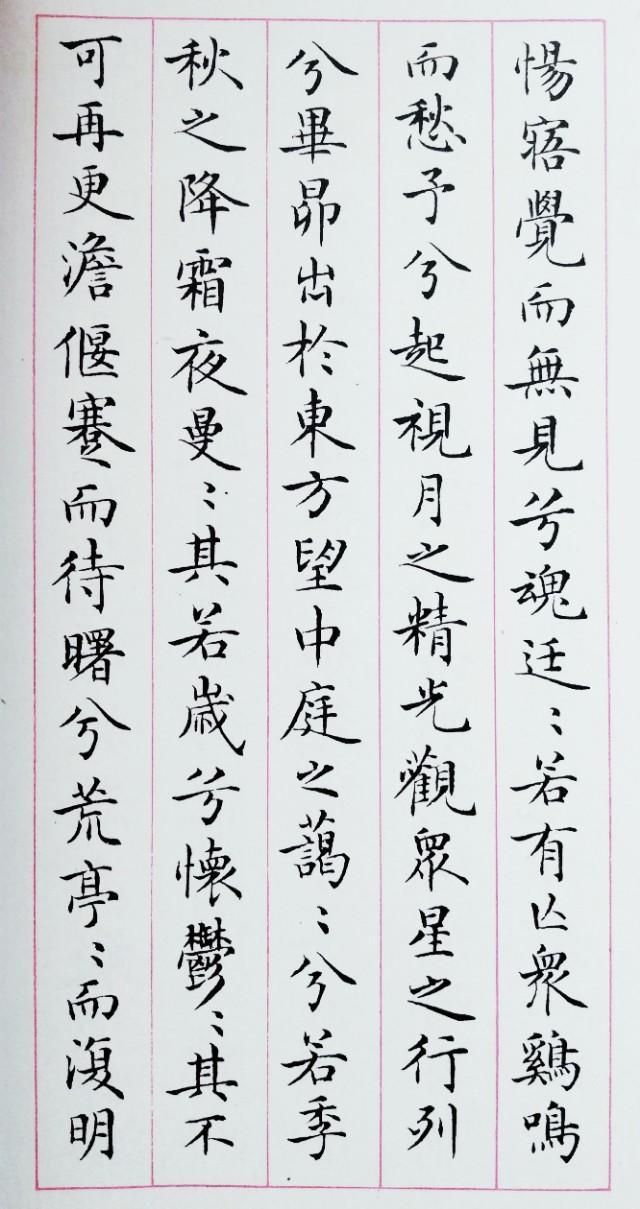 惕寤覺而無見兮魂迋〻若有亾衆鷄鳴
而愁予兮起視月之精光觀衆星之行列
兮畢昴出於東方望中庭之藹〻兮若季
秋之降霜夜曼〻其若歲兮懷鬱〻其不
可再更澹偃蹇而待曙兮荒亭〻而復明